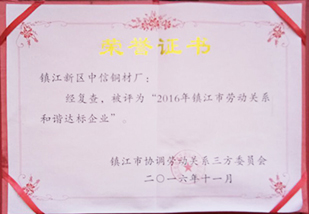 荣誉证书
镇江新区中信铜材厂：
经复查，被评为“2016年镇江市劳动关系
和谐达标企业”。
镇江市协调劳动关系三方委员会
二〇一六年十一月